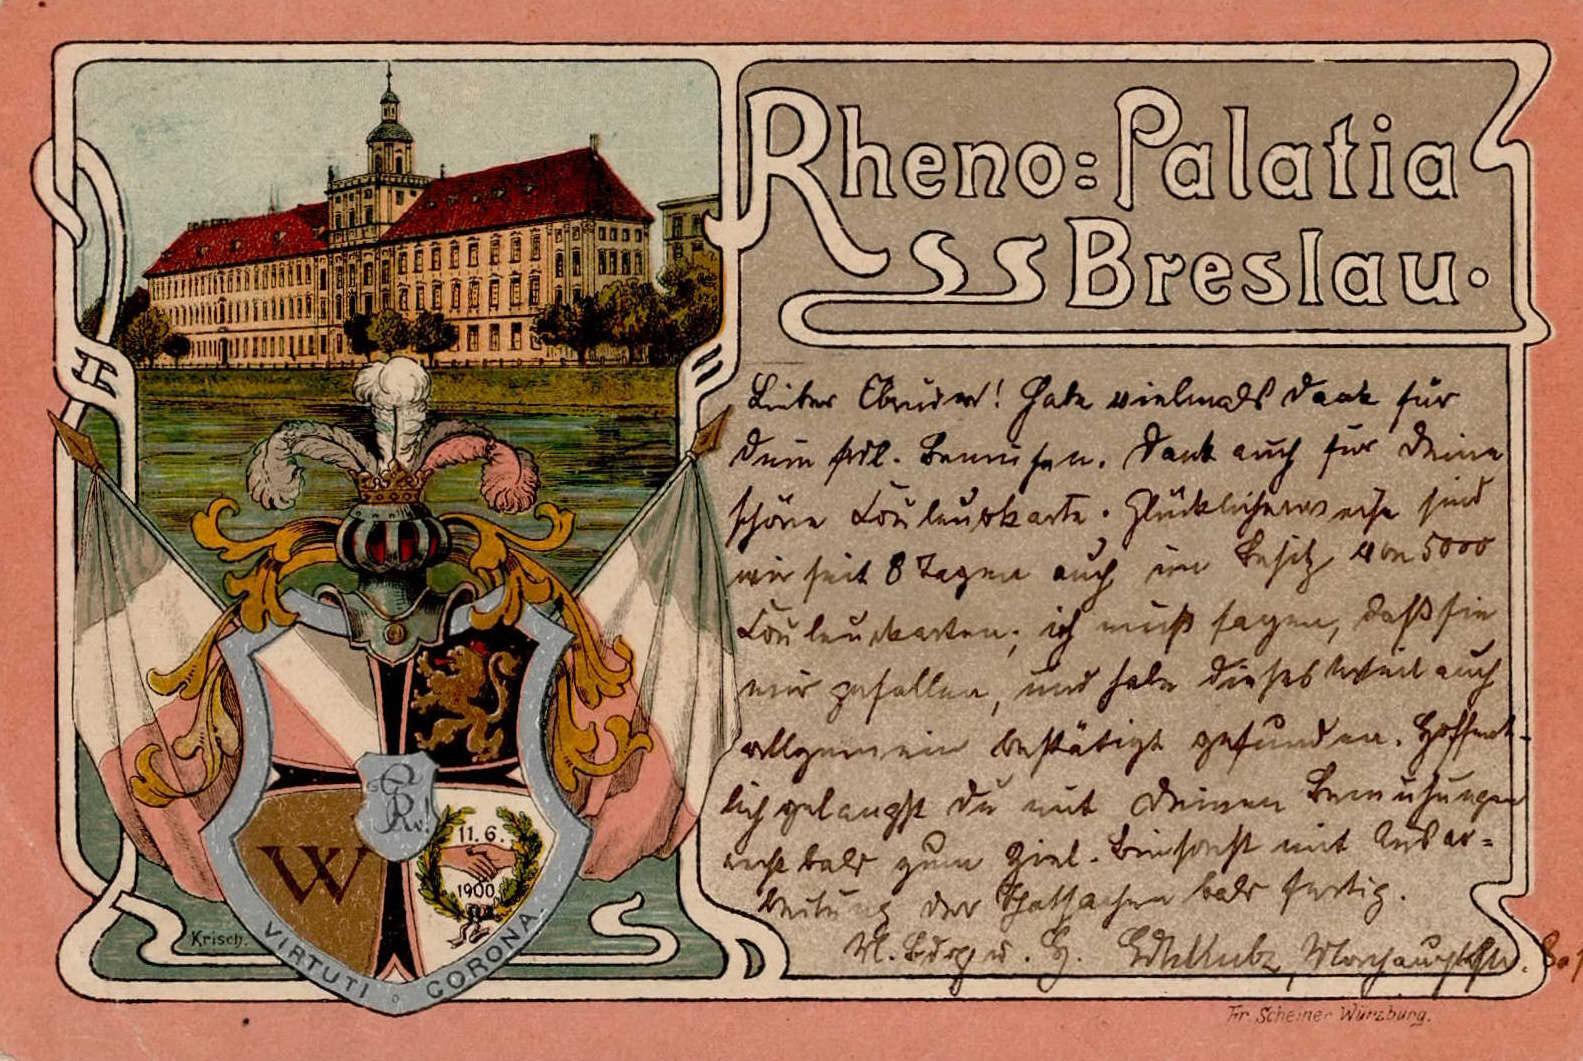 Rheno-Palatia
Breslau.
Lieber Ebruder! Habe vielmals Dank für
Dein frdl. Bemühen. Dank auch für Deine
schöne Couleurkarte. Glücklicherweise sind
wir seit 8 Tagen auch im Besitz von 5000
Couleurkarten; ich muß sagen, daß sie
mir gefallen, und habe dieses Urteil auch
allgemein bestätigt gefunden. Hoffent-
lich gelangst Du mit Deinen Bemühungen
recht bald zum Ziel. Bin sonst mit
der bald fertig.
11.6.
1900
W
VIRTUTI CORONA
Krisch.
Fr. Scheiner Würzburg.